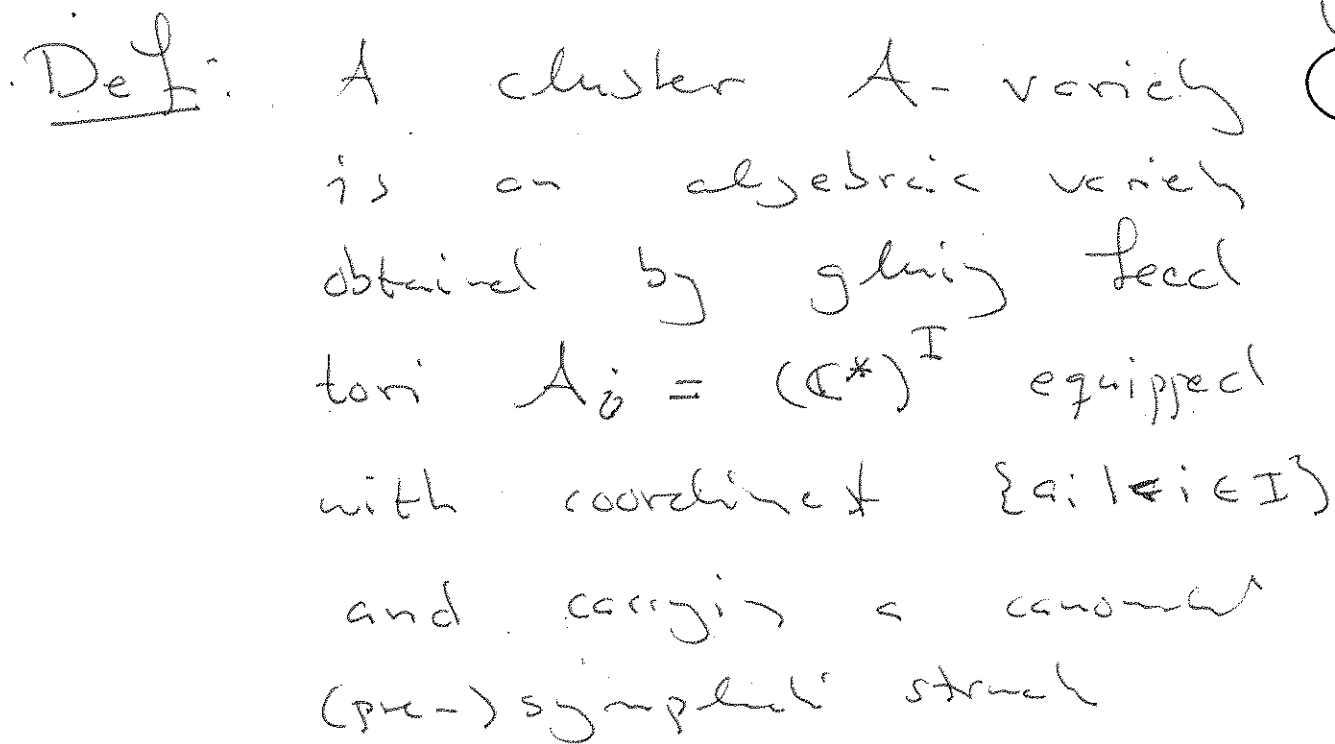 Def: A cluster A-variety
is an algebraic variety
obtained by gluing seed
tori A_i = (ℂ*)^I equipped
with coordinates {a_i | i ∈ I}
and carrying a canonical
(pre-)symplectic struct